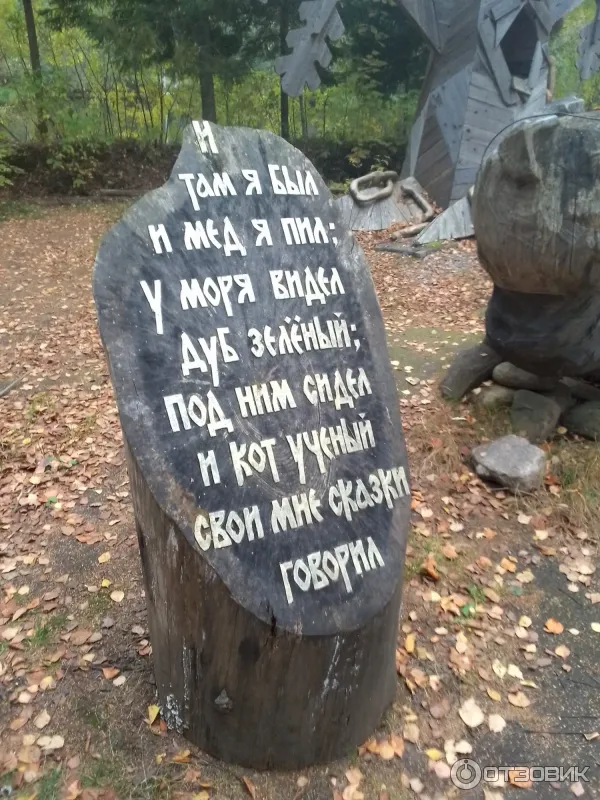 И
там я был
и мед я пил;
у моря видел
дуб зелёный;
под ним сидел
и кот ученый
свои мне сказки
говорил
ОТЗОВИК